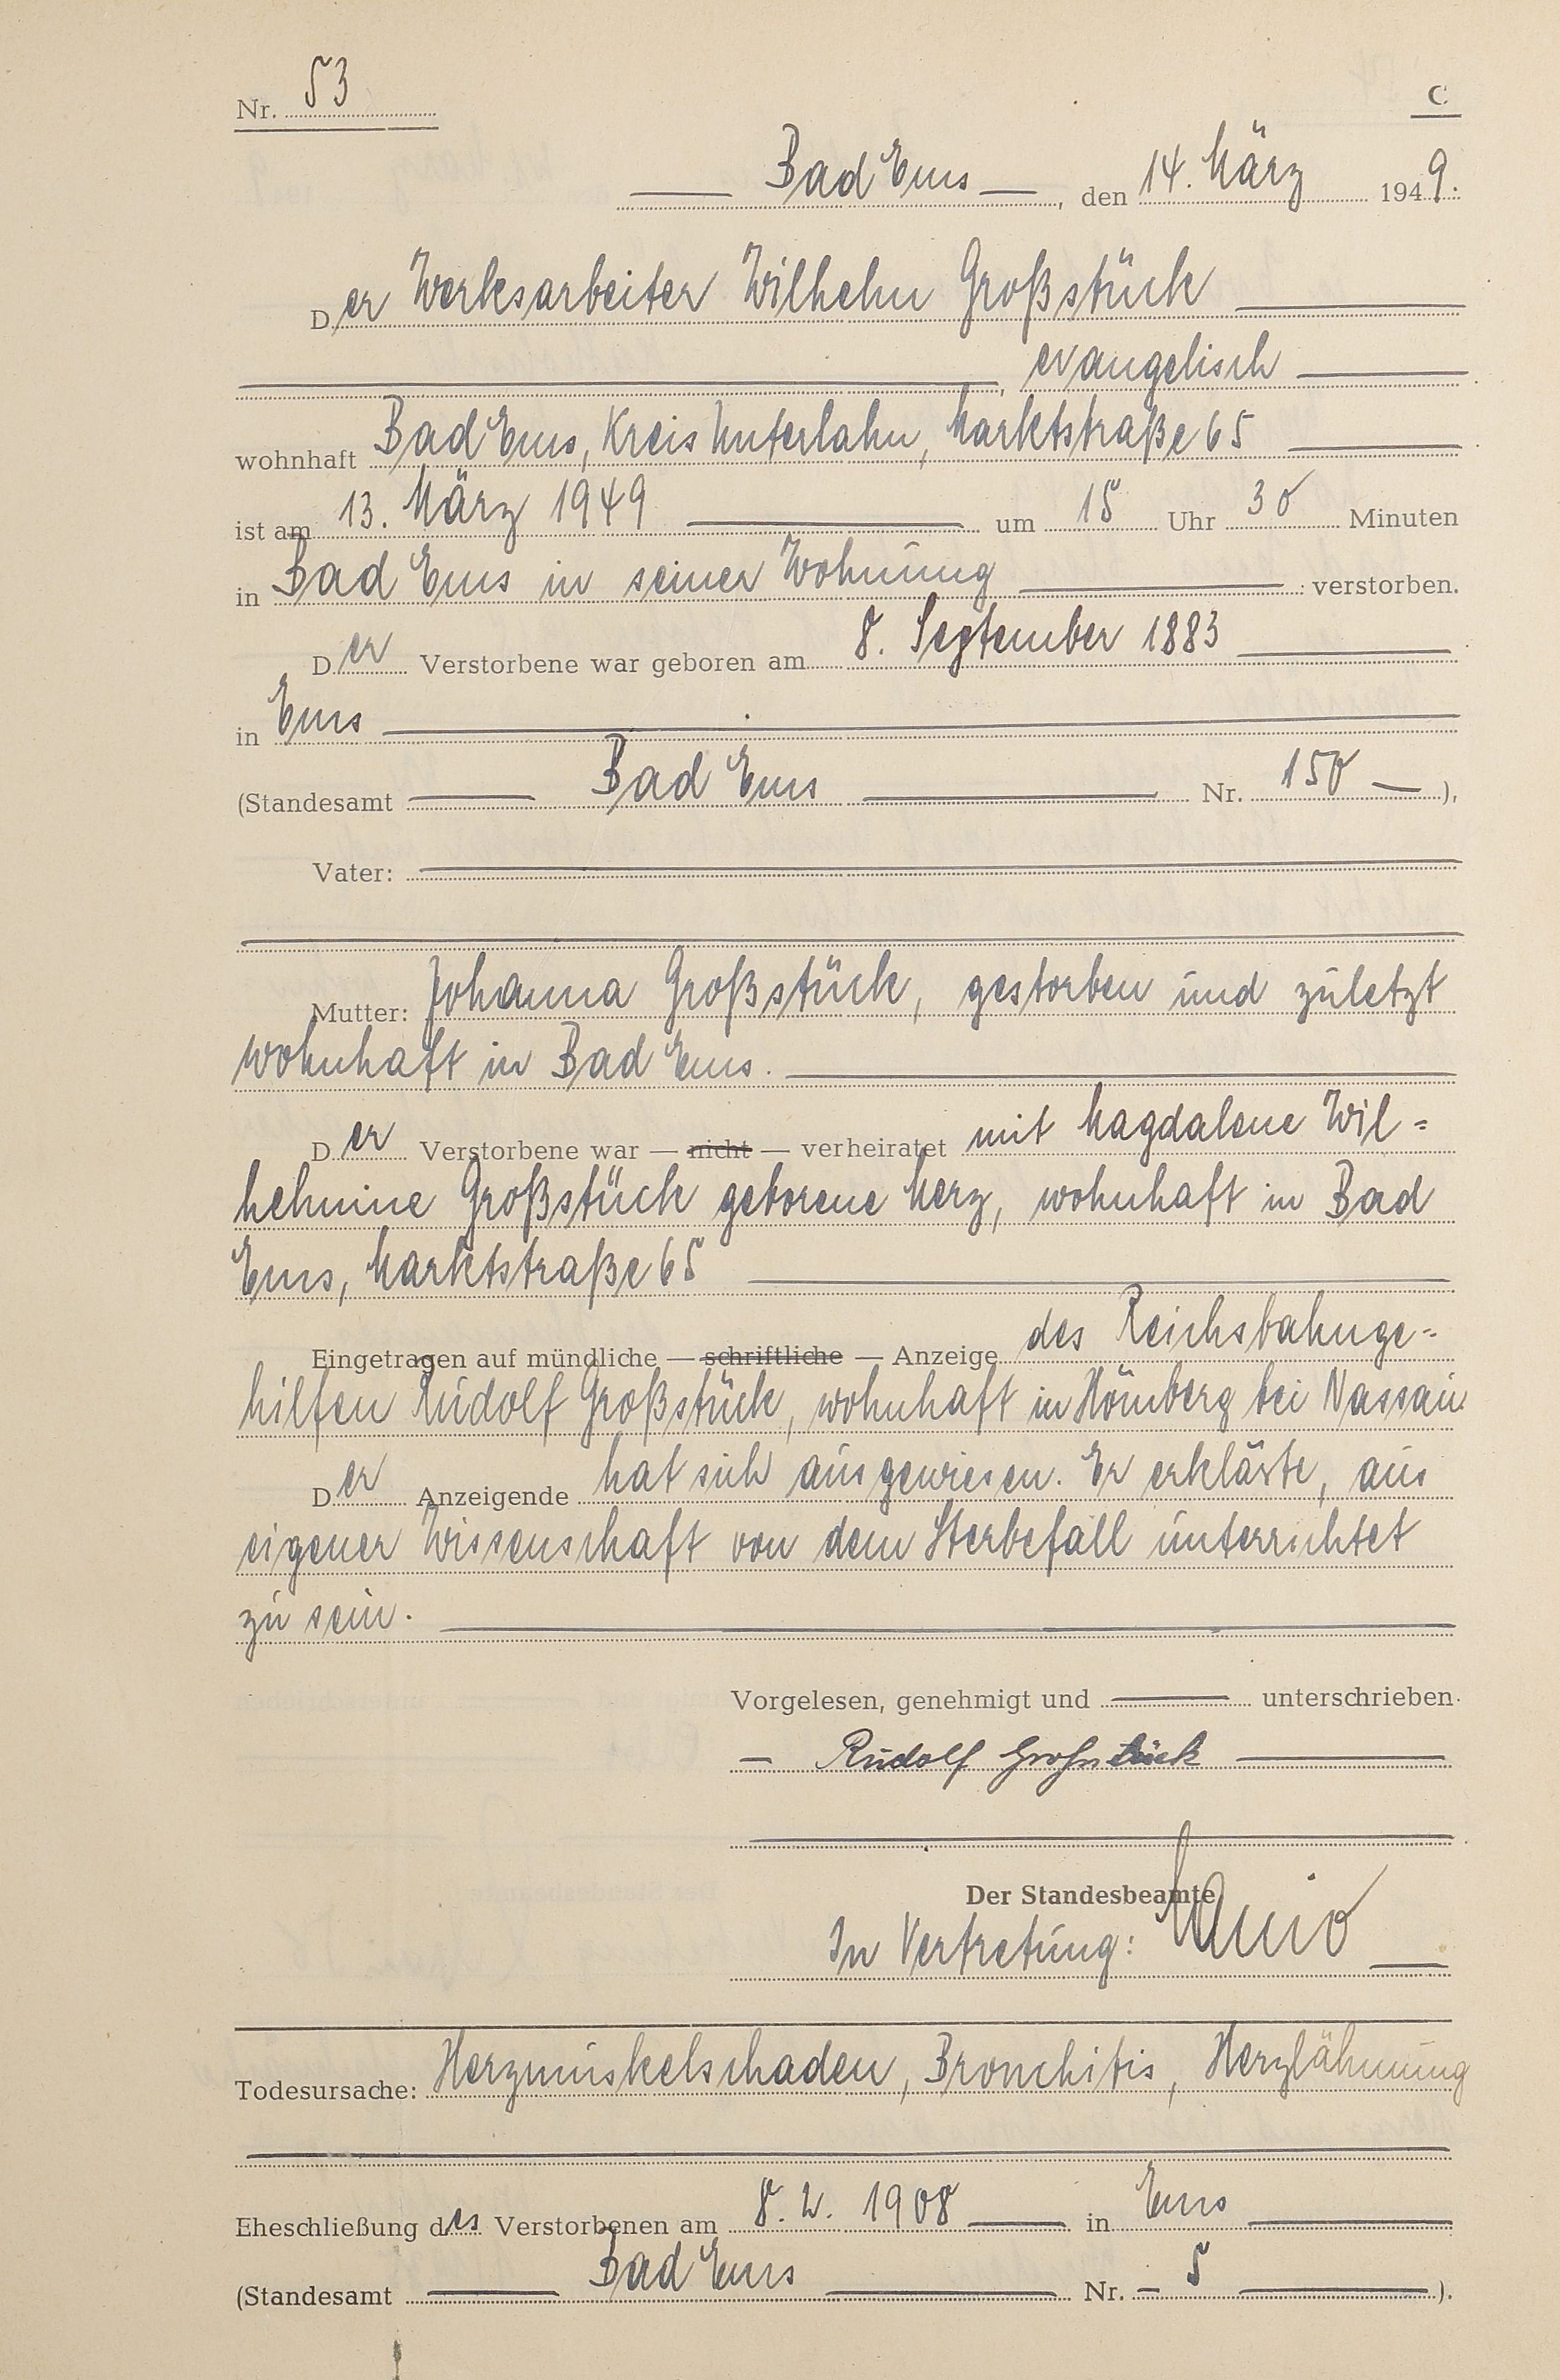 Nr. 53
C
Bad Ems, den 14. März 1949.
Der Werksarbeiter Wilhelm Großstück
, evangelisch
wohnhaft Bad Ems, Kreis Unterlahn, Marktstraße 65
ist am 13. März 1949 um 15 Uhr 30 Minuten
in Bad Ems in seiner Wohnung verstorben.
Der Verstorbene war geboren am 8. September 1883
in Ems
(Standesamt Bad Ems Nr. 150 —),
Vater:
Mutter: Johanna Großstück, gestorben und zuletzt
wohnhaft in Bad Ems.
Der Verstorbene war — nicht — verheiratet mit Magdalene Wil=
helmine Großstück geborene Merz, wohnhaft in Bad
Ems, Marktstraße 65
Eingetragen auf mündliche — schriftliche — Anzeige des Reichsbahnge=
hilfen Rudolf Großstück, wohnhaft in Hömberg bei Nassau.
Der Anzeigende hat sich ausgewiesen. Er erklärte, aus
eigener Wissenschaft von dem Sterbefall unterrichtet
zu sein.
Vorgelesen, genehmigt und unterschrieben
Rudolf Großstück
Der Standesbeamte
In Vertretung:
Todesursache: Herzmuskelschaden, Bronchitis, Herzlähmung
Eheschließung des Verstorbenen am 8. 2. 1908 in Ems
(Standesamt Bad Ems Nr. — 5 ).